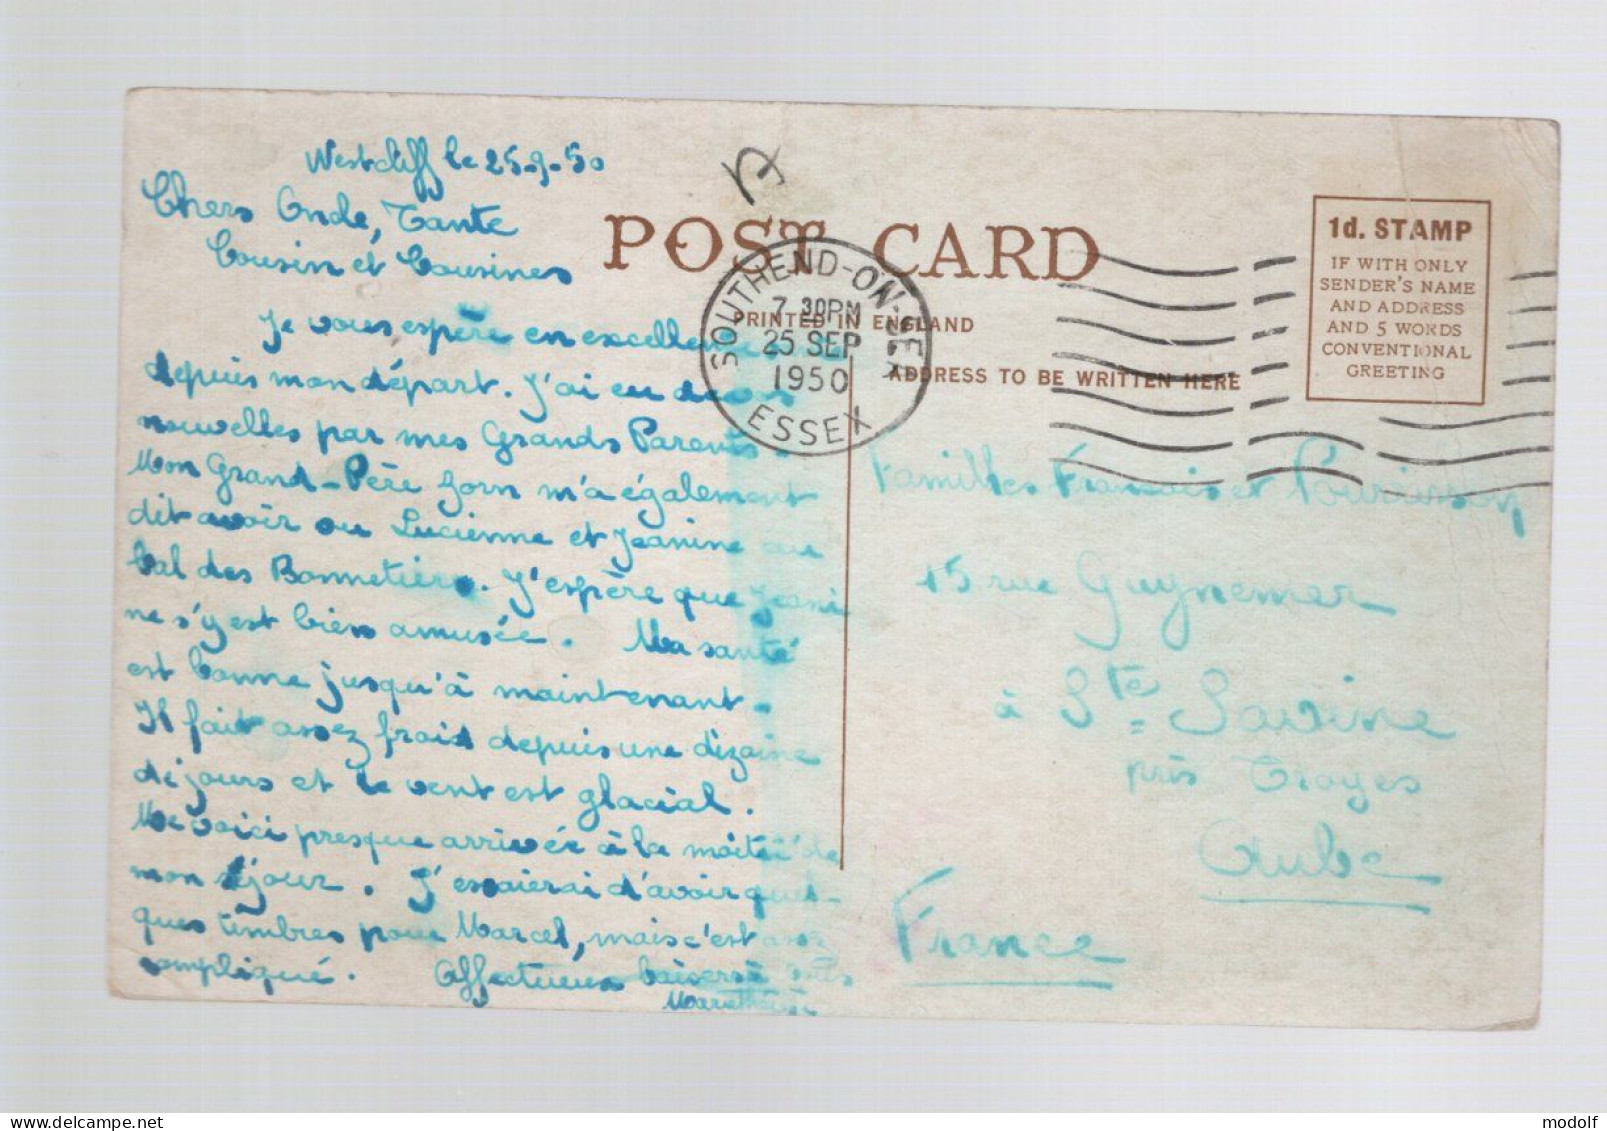 Westcliff le 25-9-50
Chers Oncle, Tante
Cousin et Cousines
Je vous espère en excellen
depuis mon départ. J'ai eu de vos
nouvelles par mes Grands Parents.
Mon Grand-Père Zorn m'a également
dit avoir vu Lucienne et Jeanine au
bal des Bonnetiers. J'espère que Jeani
ne s'y est bien amusée. Ma santé
est bonne jusqu'à maintenant.
Il fait assez froid depuis une dizaine
de jours et le vent est glacial.
Me voici presque arrivée à la moitié de
mon séjour. J'essaierai d'avoir quel-
ques timbres pour Marcel, mais c'est assez
compliqué. Affectueux baisers à tous
POST CARD
PRINTED IN ENGLAND
ADDRESS TO BE WRITTEN HERE
SOUTHEND-ON-SEA
7 30PM
25 SEP
1950
ESSEX
1d. STAMP
IF WITH ONLY
SENDER'S NAME
AND ADDRESS
AND 5 WORDS
CONVENTIONAL
GREETING
Familles Francais et
15 rue Guynemer
à Ste Savine
près Troyes
Aube
France
delcampe.net
modolf